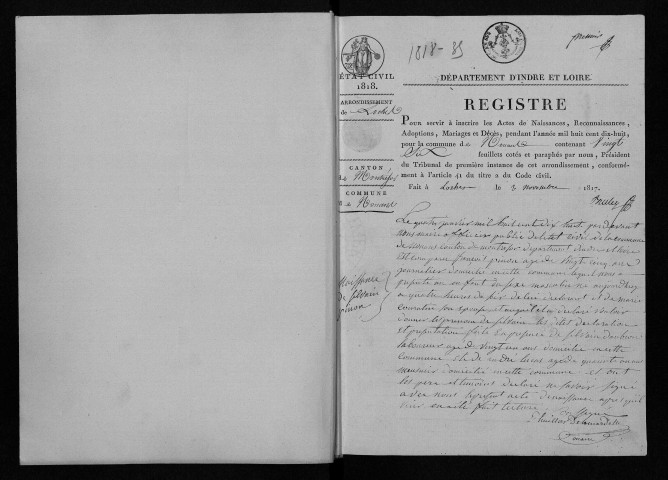 1818-85
premier
ÉTAT CIVIL
1818.
ARRONDISSEMENT
de Loches
CANTON
de Montrésor
COMMUNE
DÉPARTEMENT D'INDRE ET LOIRE.
REGISTRE
Pour servir à inscrire les Actes de Naissances, Reconnaissances,
Adoptions, Mariages et Décès, pendant l'année mil huit cent dix-huit,
pour la commune de contenant Vingt
Six feuillets cotés et paraphés par nous, Président
du Tribunal de première instance de cet arrondissement, conformé-
ment à l'article 41 du titre 2 du Code civil.
Fait à Loches le 3 novembre 1817.
Naissance
de silvain
pinon
Le quatre janvier mil huit cent dix huit par devant
nous maire officier public de l'etat civil de la commune
de canton de montresor departement d'indre et loire
est comparu francois pinon age de vingt cinq ans
journalier domicilie en cette commune lequel nous a
presente un enfant du sexe masculin ne aujourd'huy
a quatre heures du de lui declarant et de marie
son epouse et auquel il a declare vouloir
donner le prenom de silvain les dites declaration
et presentation faite en presence de silvain
laboureur age de vingt un ans domicilie en cette
commune et de andre lucas age de quarante un ans
domicilie en cette commune et ont
les pere et temoins declare ne savoir signe
avec nous le present acte de naissance apres qu'il
leur en a ete fait lecture
maire